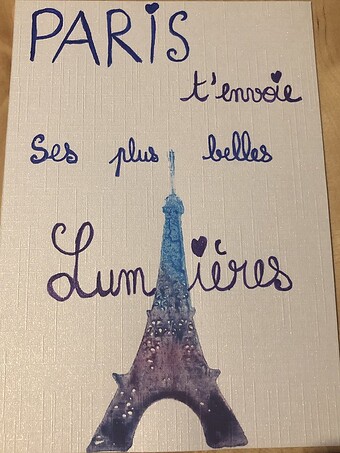 PARIS
t'envoie
Ses plus belles
Lumières